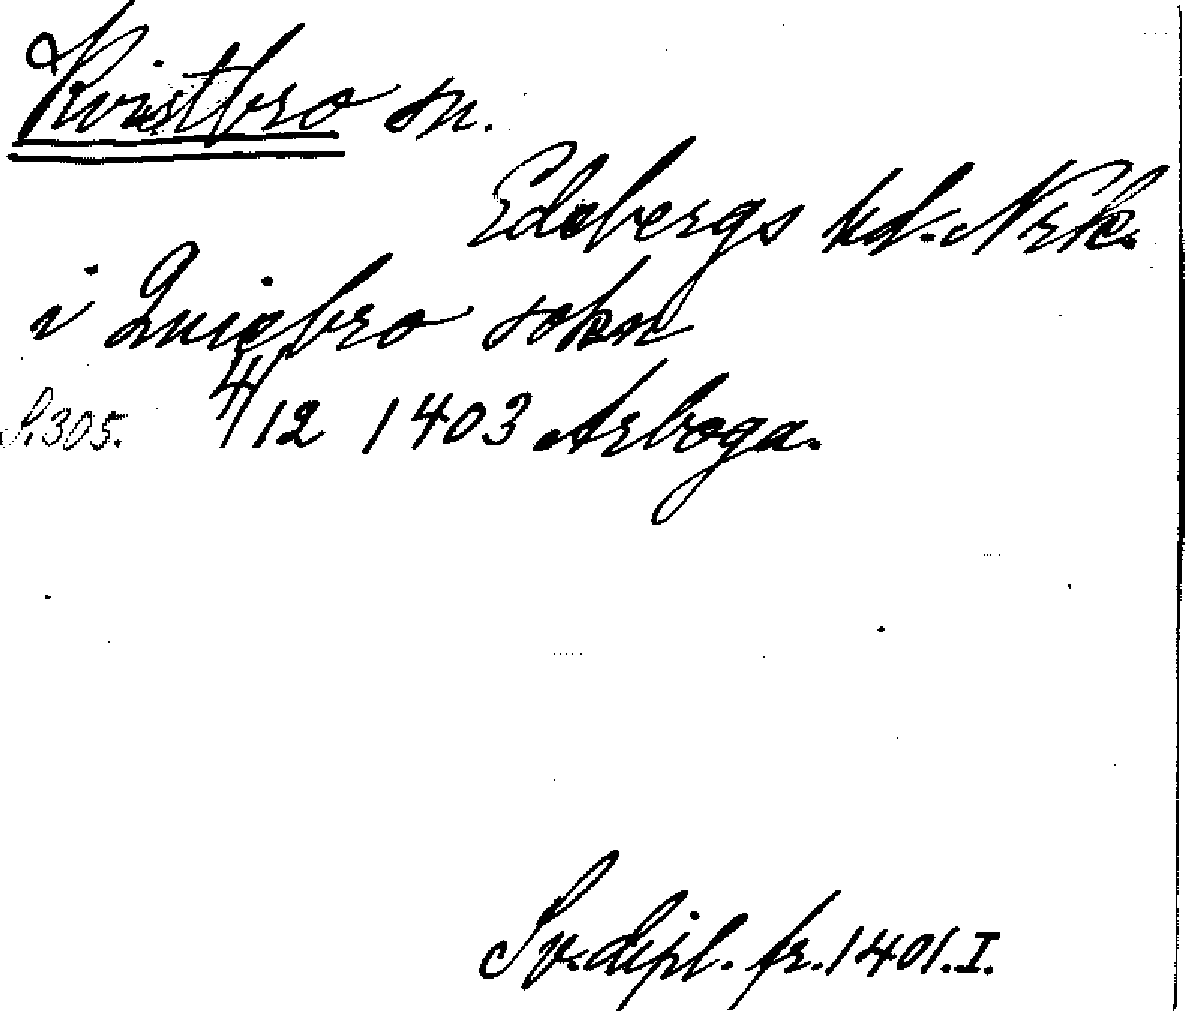 Kvistbro sn.
Edsbergs hd. Nrk.
i Quiabro sokn
S. 305. 4/12 1403 Arboga.
Sv. dipl. fr. 1401. I.